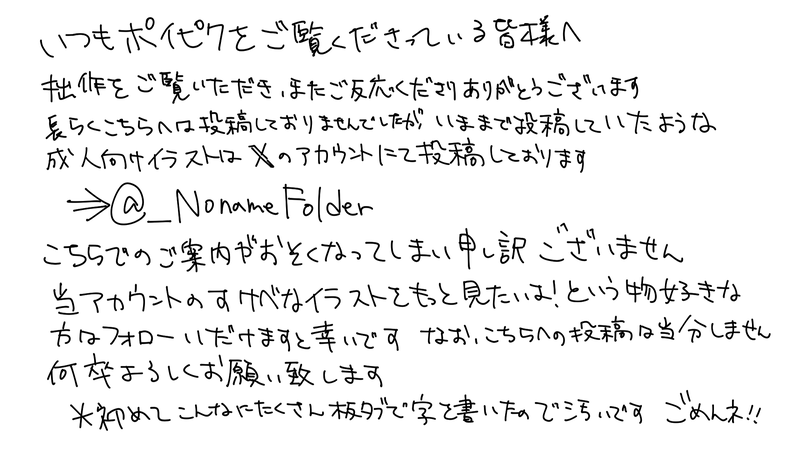 いつもポイピクをご覧くださっている皆様へ
拙作をご覧いただき、またご反応くださりありがとうございます
長らくこちらへは投稿しておりませんでしたが、いままで投稿していたような
成人向けイラストはXのアカウントにて投稿しております
⇒@_NonameFolder
こちらでのご案内がおそくなってしまい申し訳ございません
当アカウントのすけべなイラストをもっと見たいよ!という物好きな
方はフォローいだけますと幸いです なお、こちらへの投稿は当分しません
何卒よろしくお願い致します
※初めてこんなにたくさん板タブで字を書いたので汚いです ごめんネ!!